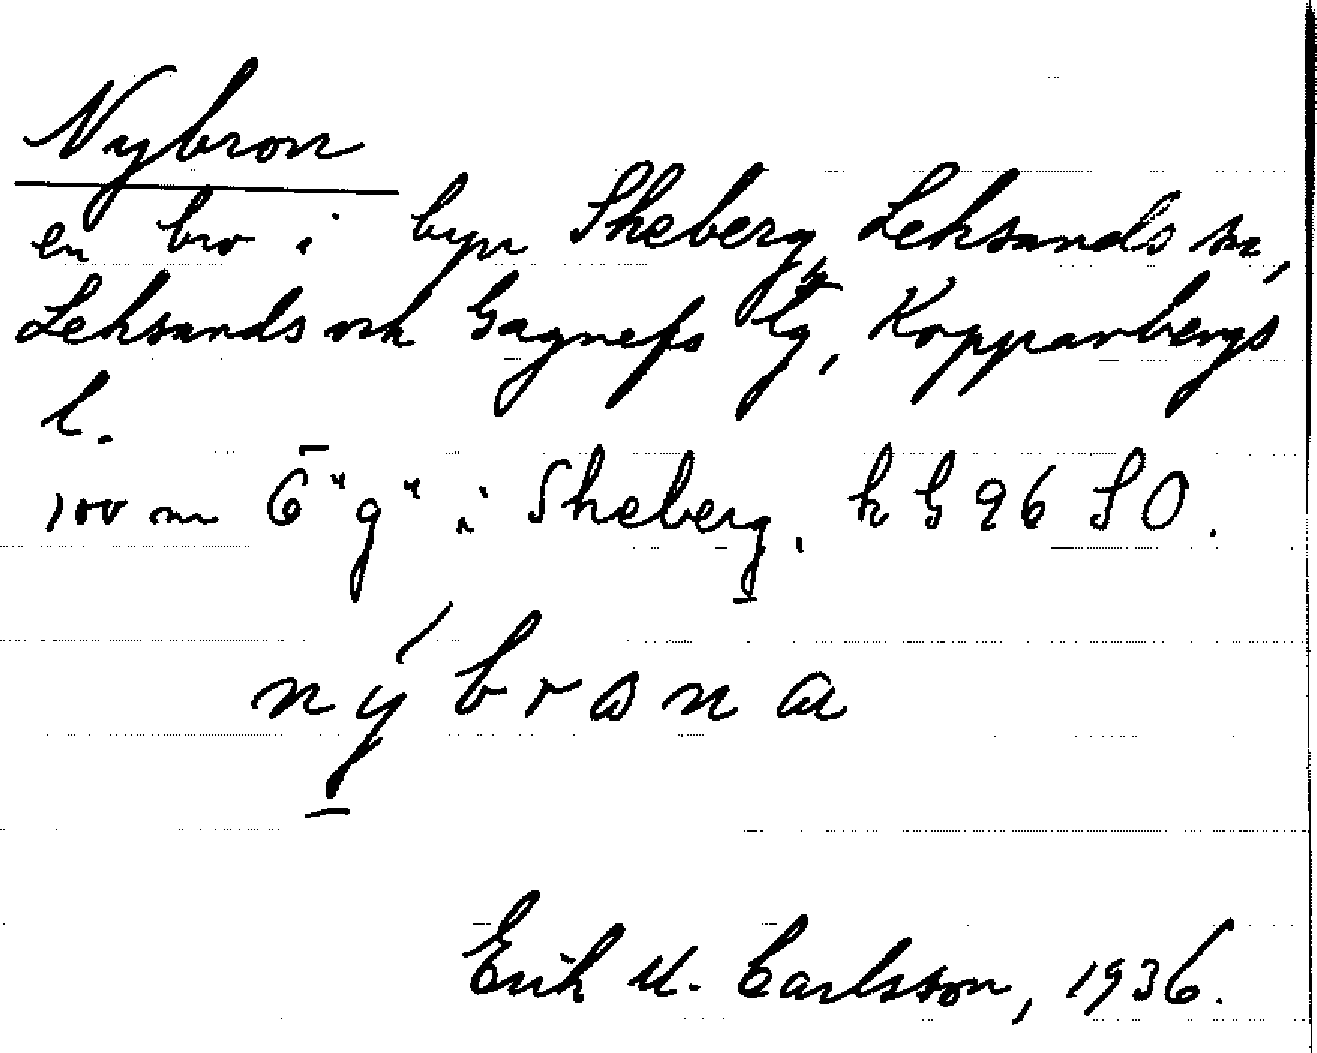 Nybron
en bro i byn Skeberg, Leksands sn,
Leksands och Gagnefs tg, Kopparbergs
l.
100 m Ö "g" i Skeberg. k G 96 SO.
nýbrona
Erik U. Carlsson, 1936.